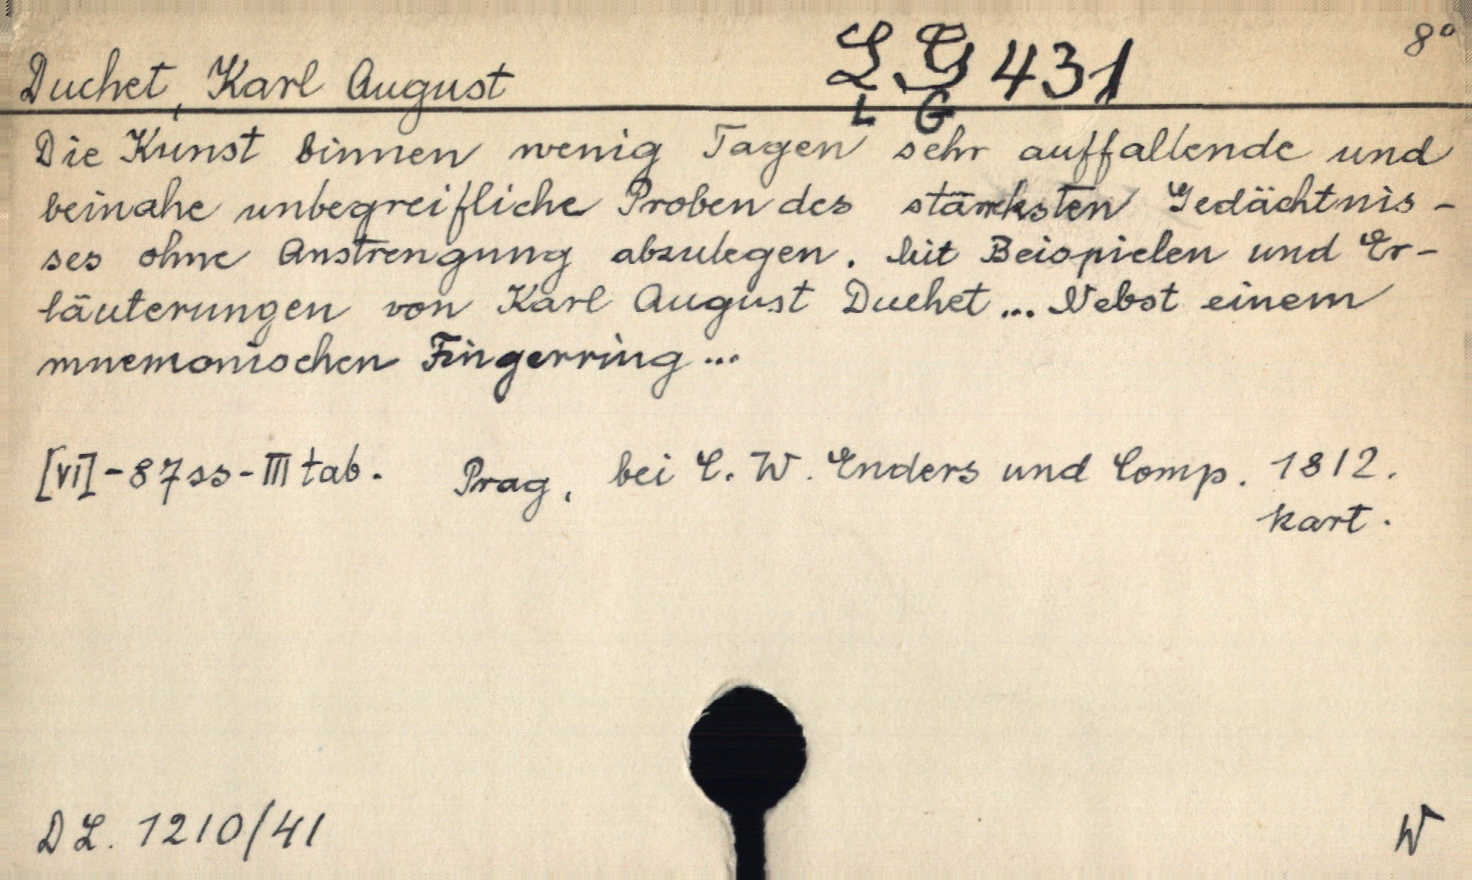 8°
Duchet, Karl August LG 431
L G
Die Kunst binnen wenig Tagen sehr auffallende und
beinahe unbegreifliche Proben des stärksten Gedächtnis-
ses ohne Anstrengung abzulegen. Mit Beispielen und Er-
läuterungen von Karl August Duchet ... Nebst einem
mnemonischen Fingerring ...
[VI]-87ss-III tab. Prag, bei C. W. Enders und Comp. 1812.
kart.
DL. 1210/41 W